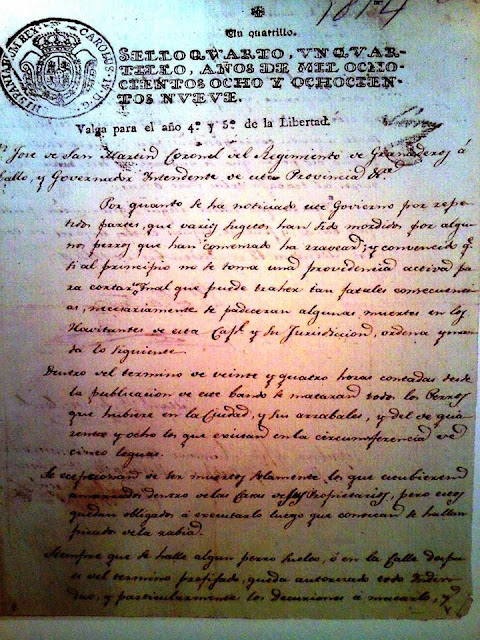 1814
Un quartillo.
SELLO QUARTO, UN QUAR-
TILLO, AÑOS DE MIL OCHO-
CIENTOS OCHO Y OCHOCIEN-
TOS NUEVE.
HISPANIARUM REX CAROLUS IV D. G.
Valga para el año 4º y 5º de la Libertad.
Dn Jose de San Martin Coronel del Regimiento de Granaderos á
Caballo, y Governador Intendente de esta Provincia &a
Por quanto se ha noticiado este Govierno por repe-
tidos partes, que varios sugetos han sido mordidos por algu-
nos perros que han comensado ha rravear; y convencido qe
si al principio no se toma una providencia activa pa
ra cortar un mal que puede traher tan fatales consecuenci-
as, necesariamente se padeceran algunas muertes en los
Havitantes de esta Capl y su Jurisdiccion, ordena y man
da lo siguiente.
Dentro del termino de veinte y quatro horas contadas desde
la publicacion de este bando se mataran todos los Perros
que hubiere en la Ciudad, y sus arrabales, y del de qua
renta y ocho los que existan en la circunsferencia de
cinco leguas.
Se excepcionan de ser muertos solamente los que estubieren
amarrados dentro de las Casas de sus Propietarios, pero estos
quedan obligados á executarlo luego que conoscan se hallan
picados de la rabia.
Siempre que se halle algun perro suelto, ó en la Calle despu-
es del termino prefijado, queda autorizado todo Indivi-
duo, y particularmente los decuriones á matarlo, y